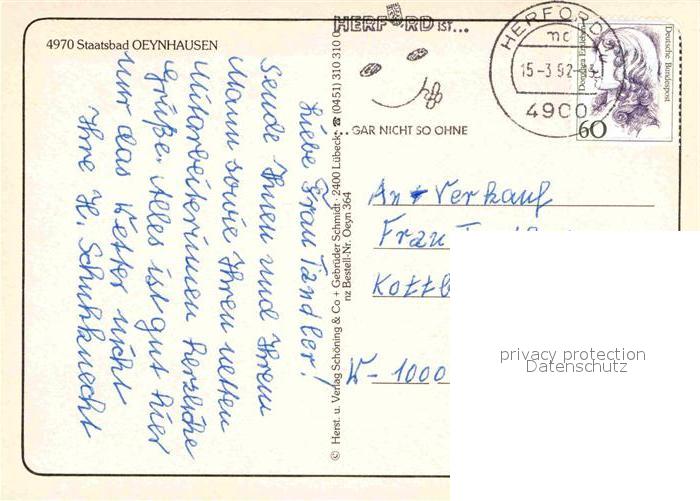 4970 Staatsbad OEYNHAUSEN
Liebe Frau Tandler!
Sende Ihnen und Ihrem
Mann sowie Ihren netten
Mitarbeiterinnen herzliche
Grüße. Alles ist gut hier
nur das Wetter nicht
Ihre H. Schuhknecht
© Herst. u. Verlag Schöning & Co + Gebrüder Schmidt · 2400 Lübeck · ☎ (0451) 310 310 0
nz Bestell-Nr. Oeyn 364
HERFORD IST...
...GAR NICHT SO OHNE
HERFORD
mc
15-3.92
4900
Deutsche Bundespost
60
An Verkauf
Frau
Kottb
W-1000
privacy protection
Datenschutz